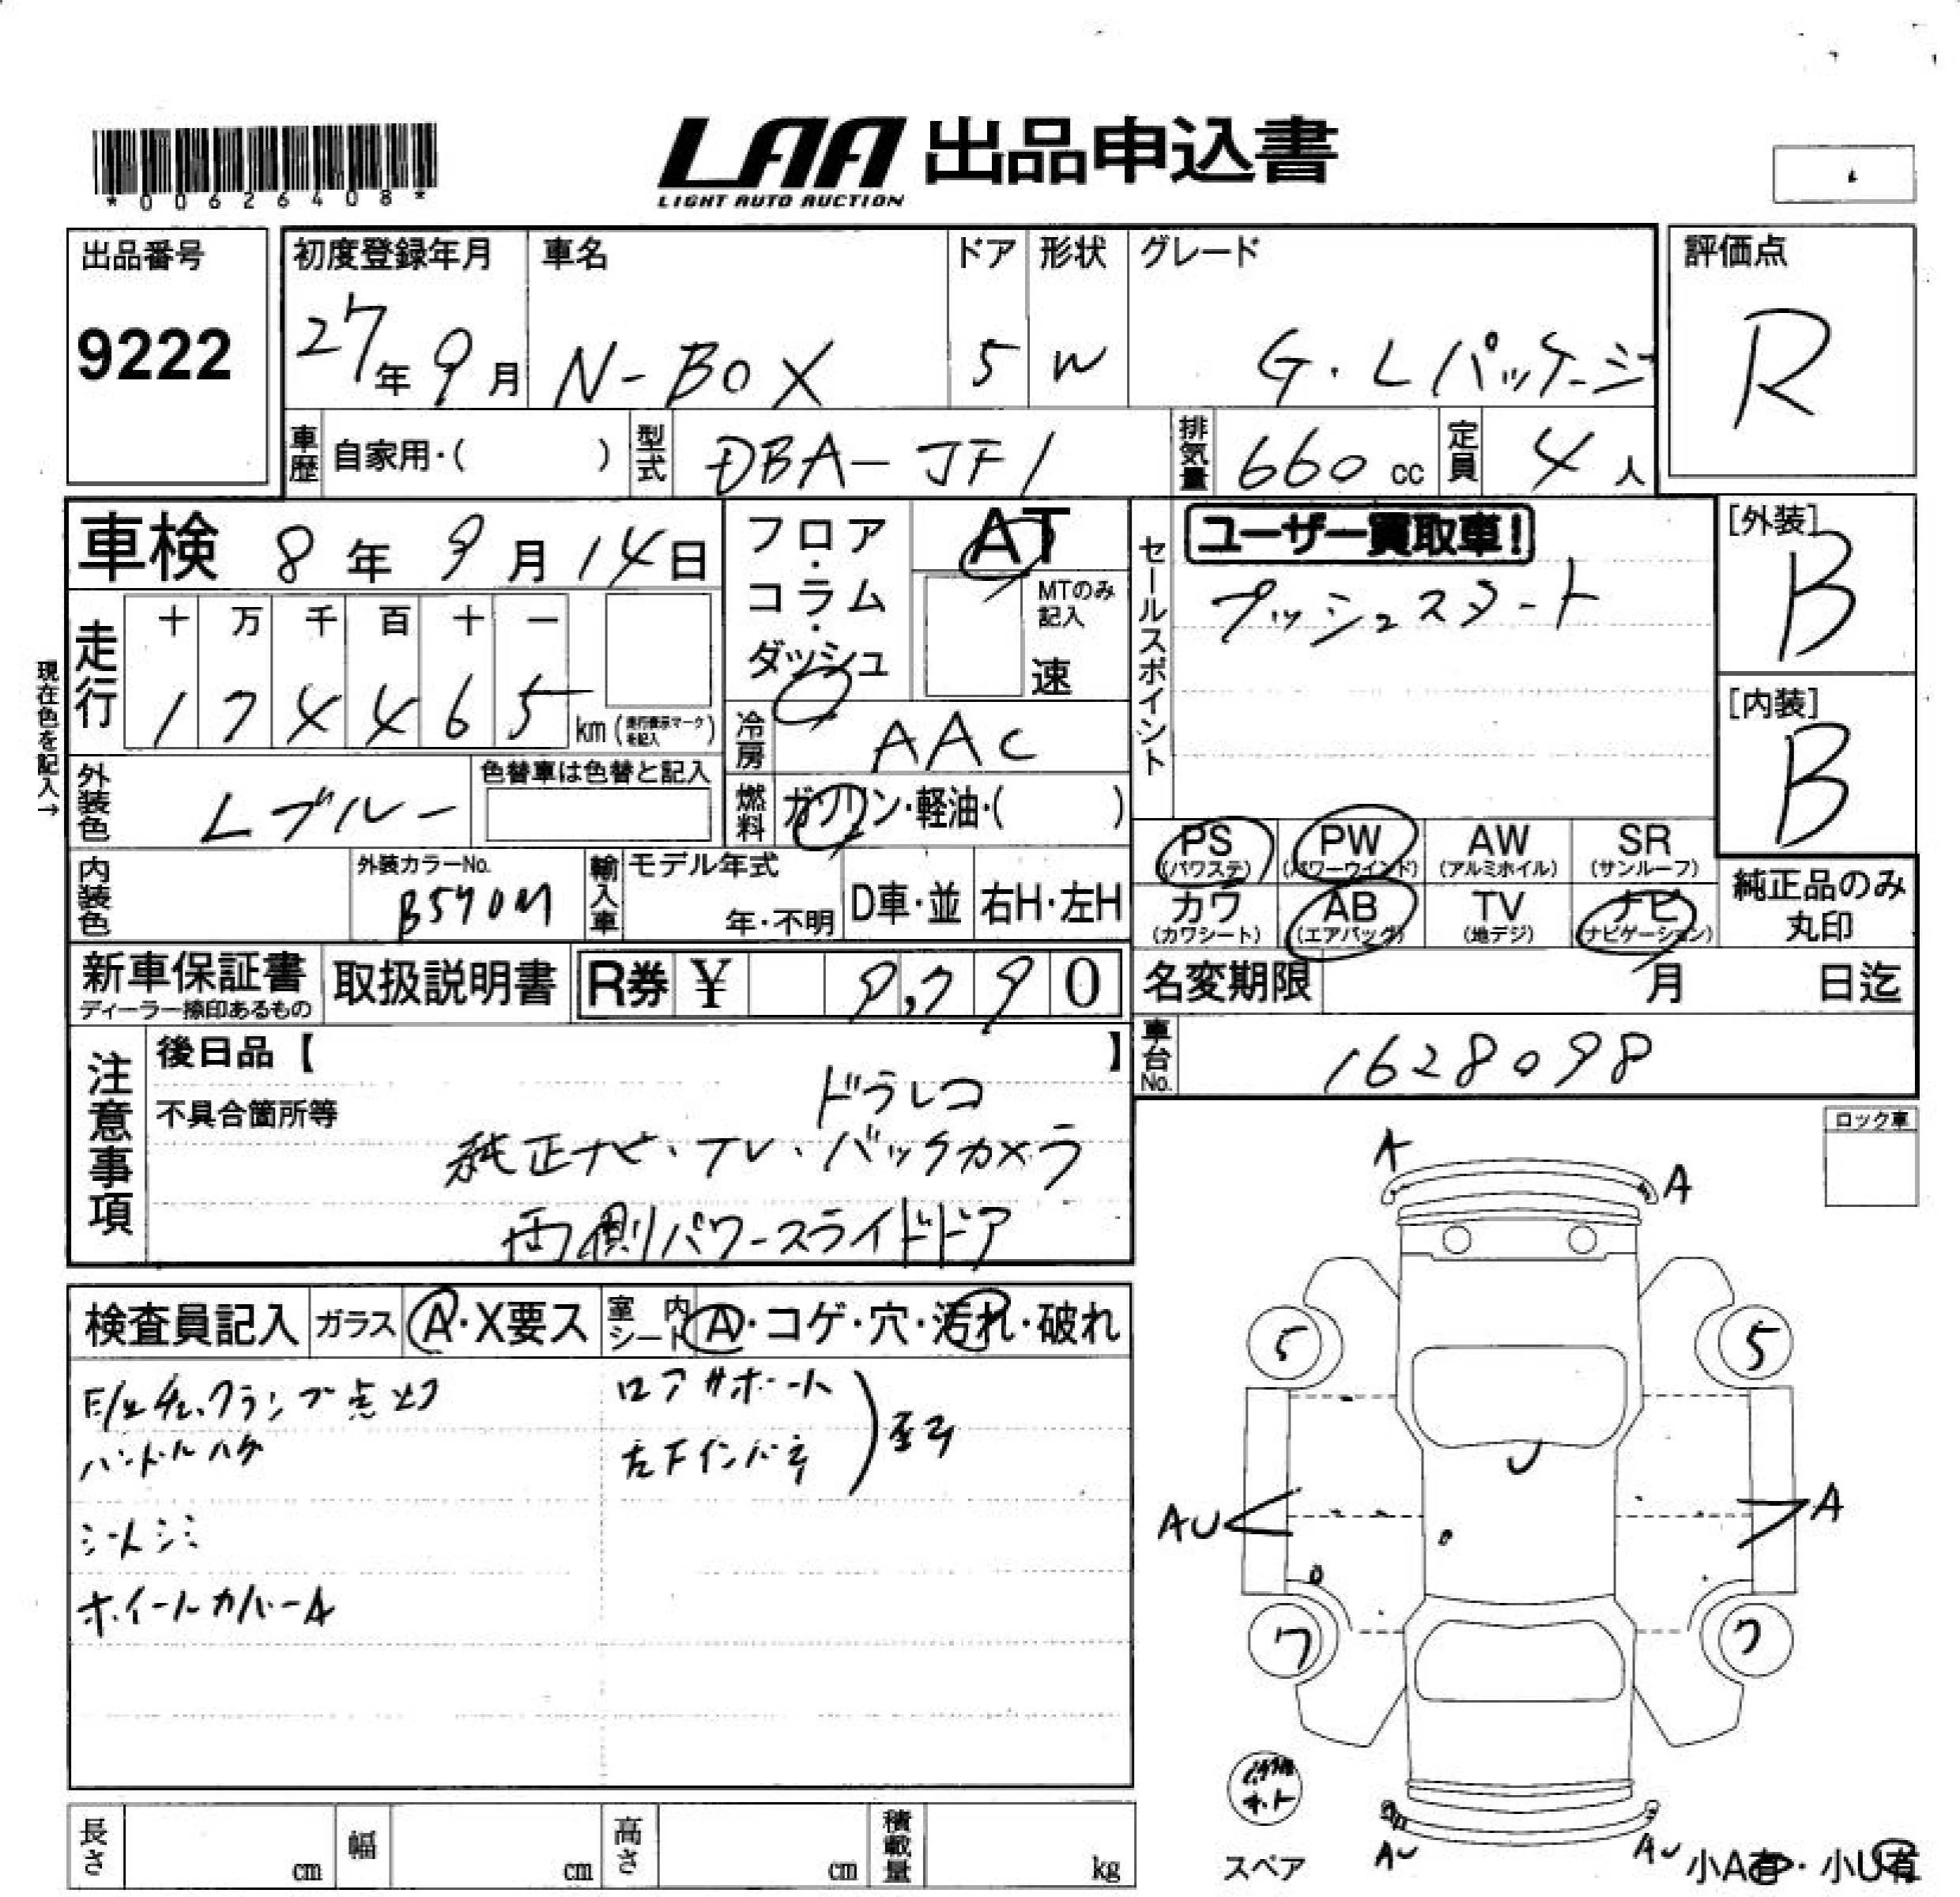 *00626408*
LAA 出品申込書
LIGHT AUTO AUCTION
出品番号
9222
初度登録年月
27年 9月
車名
N-BOX
ドア
5
形状
W
グレード
G・Lパッケージ
評価点
R
車歴 自家用・( )
型式 DBA-JF1
排気量 660 cc
定員 4人
車検 8年 9月 14日
現在色を記入→
走行
十 万 千 百 十 一
1 7 4 4 6 5 km (走行表示マークを記入)
フロア・コラム・ダッシュ
AT
MTのみ記入
速
冷房 AAC
燃料 ガソリン・軽油・( )
セールスポイント
ユーザー買取車!
プッシュスタート
[外装]
B
[内装]
B
外装色 Lブルー
色替車は色替と記入
内装色
外装カラーNo.
B590M
輸入車
モデル年式
年・不明
D車・並
右H・左H
PS (パワステ)
PW (パワーウインド)
AW (アルミホイル)
SR (サンルーフ)
カワ (カワシート)
AB (エアバッグ)
TV (地デジ)
ナビ (ナビゲーション)
純正品のみ丸印
新車保証書
ディーラー捺印あるもの
取扱説明書
R券 ¥ 9,790
名変期限 月 日迄
車台No. 1628098
注意事項
後日品【 】
不具合箇所等
ドラレコ
純正ナビ・TV・バックカメラ
両側パワースライドドア
ロック車
検査員記入
ガラス A・X要ス
室内シート A・コゲ・穴・汚れ・破れ
E/gチェックランプ点灯
ハンドルハゲ
シートシミ
ホイールカバーA
ロアサポート
右下インパネ
歪み
A
A
5
5
U
AU
A
7
7
スペア
AU
AU
小A有・小U有
長さ cm
幅 cm
高さ cm
積載量 kg